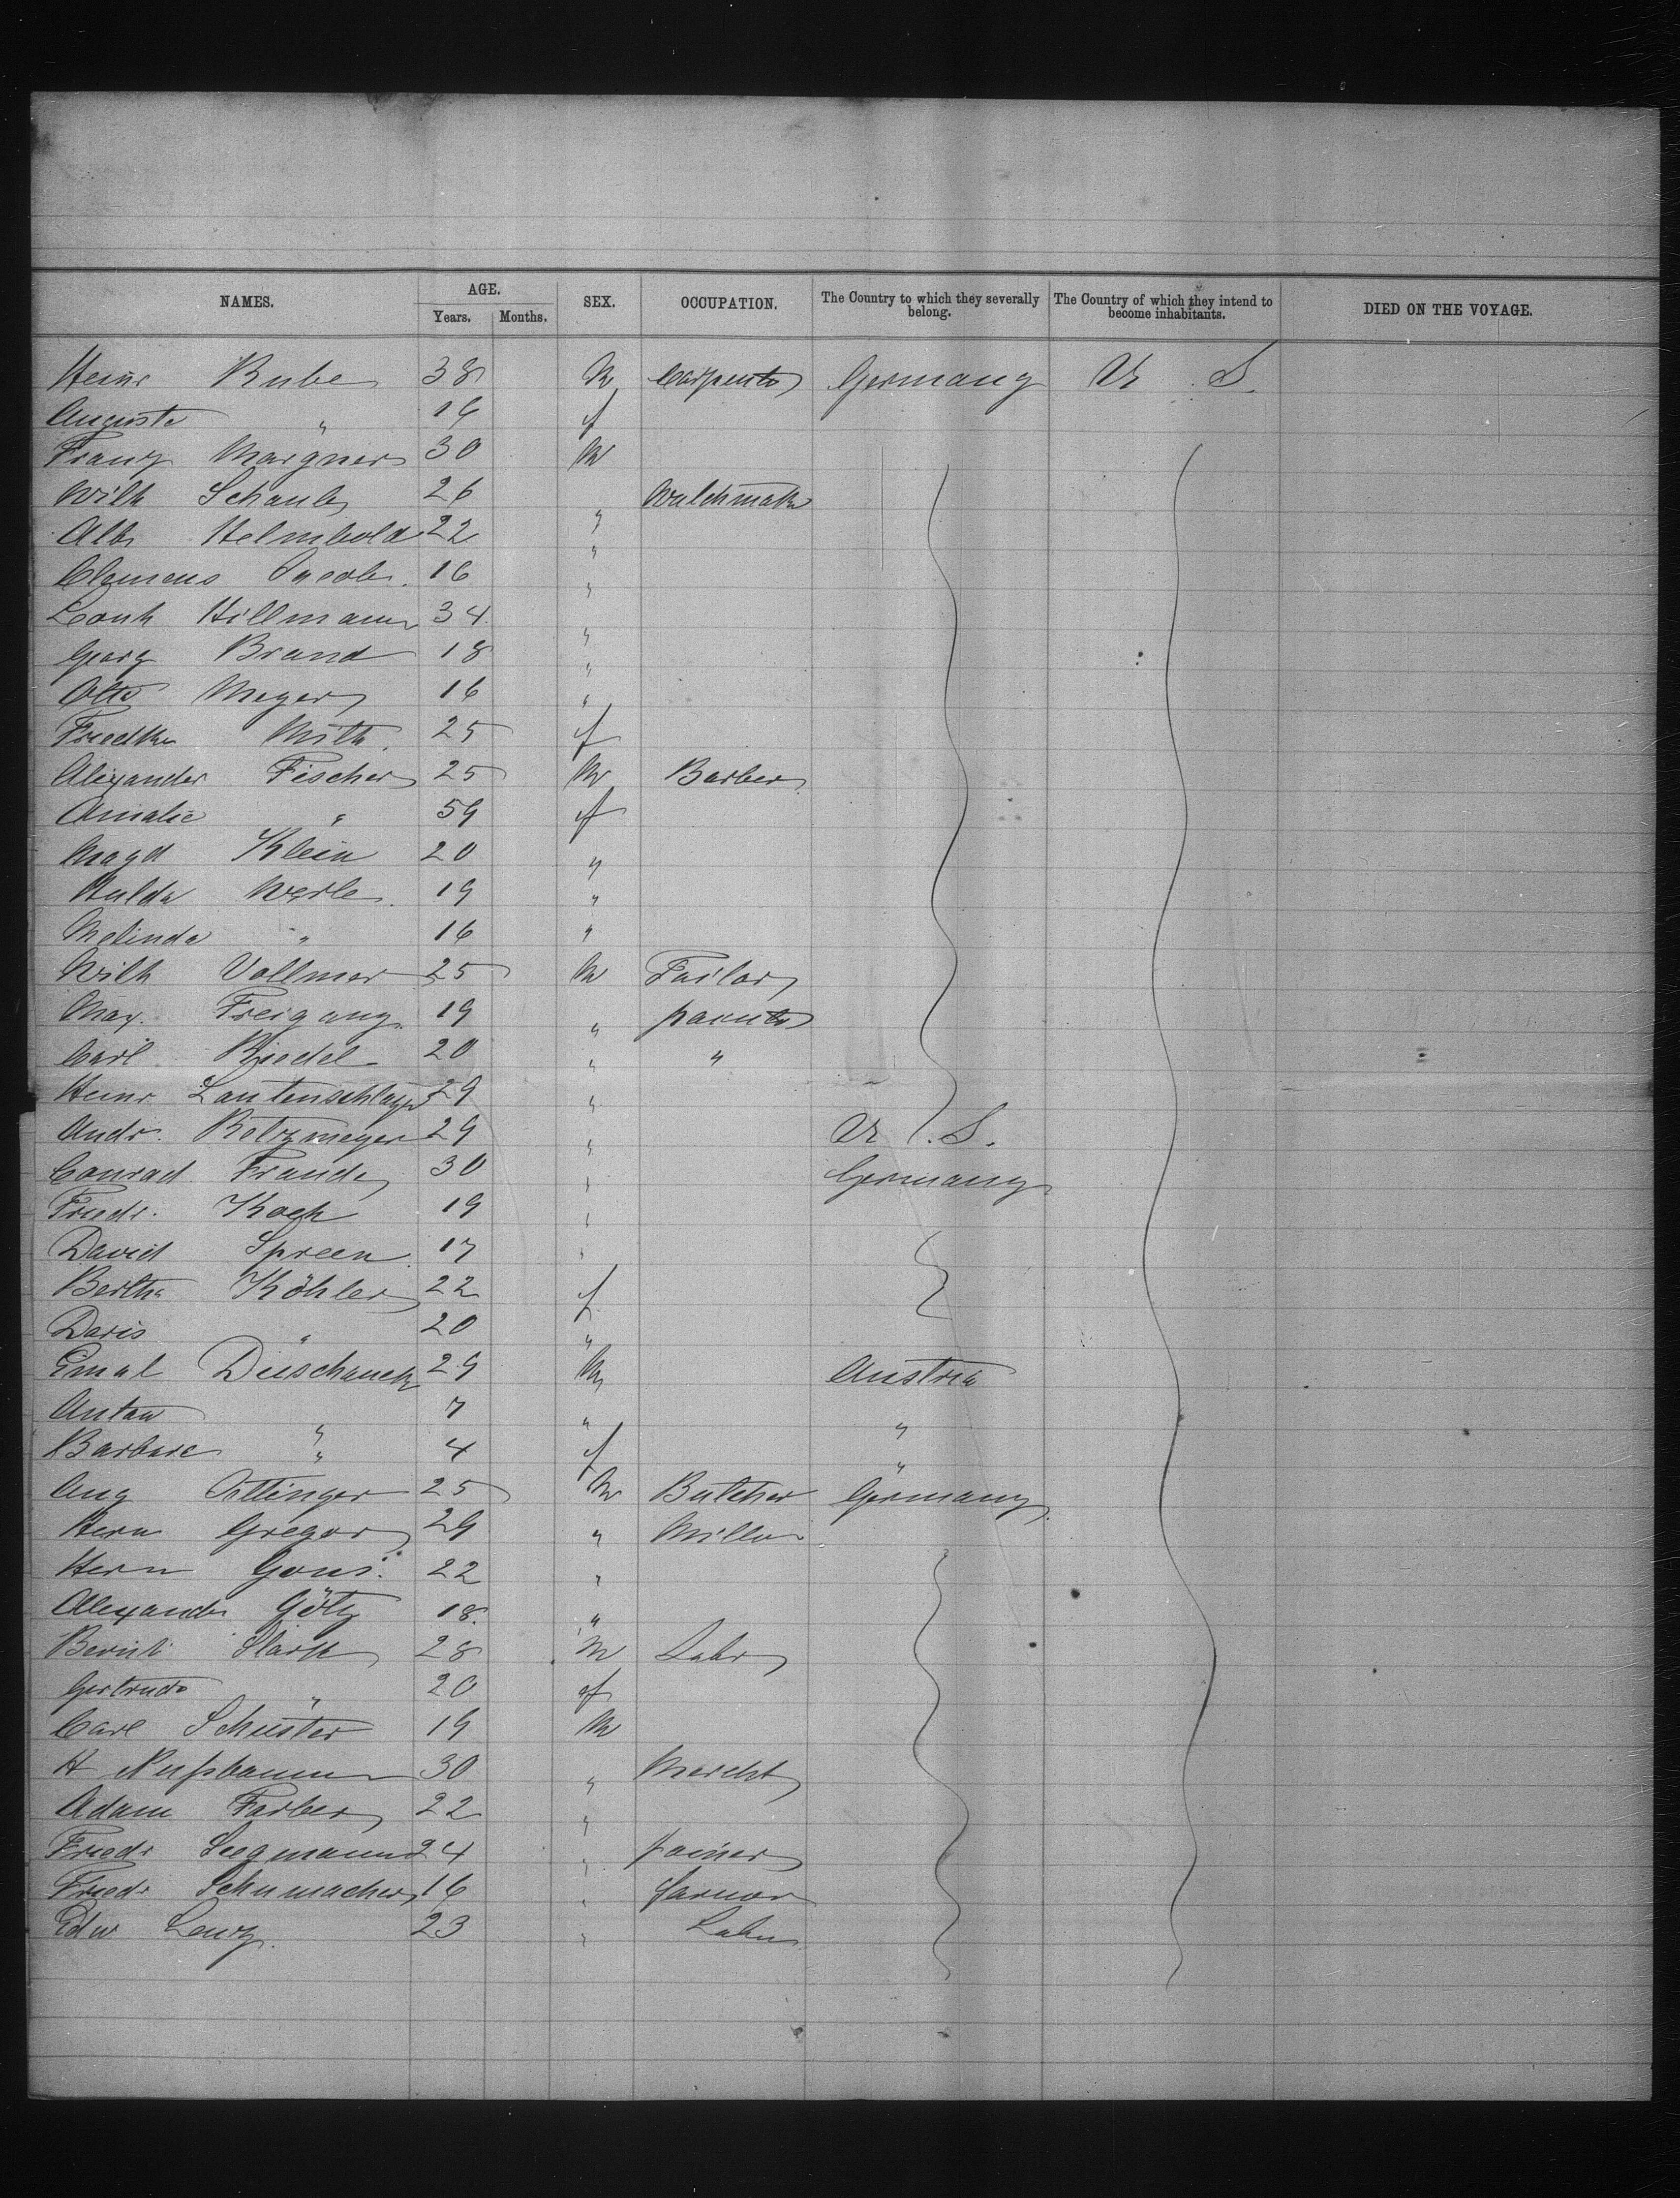 NAMES. AGE. Years. Months. SEX. OCCUPATION. The Country to which they severally belong. The Country of which they intend to become inhabitants. DIED ON THE VOYAGE.
Heinr Rube 38 M Carpenter Germany U S.
Auguste " 16 f
Franz Margner 30 M
Wilh Schaub 26 " Watchmaker
Alb Helmbold 22 "
Clemens Jacob. 16 "
Hillmann 34 "
Georg Brand 18 "
Otto Meyer 16 "
25 f
Alexander Fischer 25 M Barber
Amalie " 59 f
Magd Klein 20 "
Hulda Werle. 19 "
Melinda " 16 "
Wilh Vollmer 25 M Tailor
Max. Freigang. 19 "
Carl Riedel 20 " "
Heinr Lautenschlager 29 "
Andr. Betzmeyer 29 " U. S.
Conrad Frande 30 " Germany
Friedr. Koch 19 "
David Spreen. 17 "
Bertha Köhler 22 f
Doris " 20 "
29 M Austria
Anton " 7 " "
Barbara " 4 f "
Aug Ottinger 25 M Butcher Germany
Herm Gregor 29 " Miller
Herm 22 "
Alexander Götz 18. "
Stark 28 M Labr
Gertrude " 20 f
Carl Schuster 19 M
H Nußbaum 30 " Marcht
Adam Farber 22 "
Friedr Seegmann 24 " joiner
Friedr Schumacher 16 " farmer
Edw Lenz. 23 " Labr